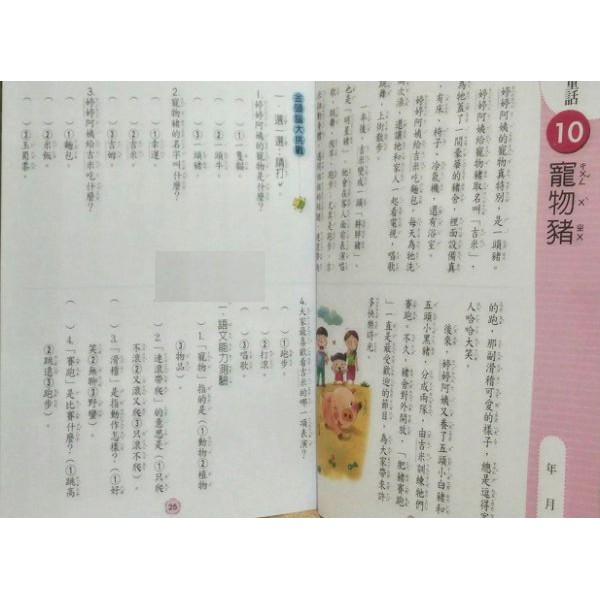 童話
10
寵物豬
年 月
婷婷阿姨的寵物真特別,是一頭豬。
婷婷阿姨給寵物豬取名叫「吉米」,
為牠蓋了一間豪華的豬舍,裡面設備真
有床、椅子、冷氣機,還有浴室。
婷婷阿姨給吉米吃麵包,每天為牠洗
澡,還讓牠和家人一起看電視,唱歌
跳舞,上街散步。
一年後,吉米變成一頭「胖胖豬」,
也是「明星豬」,牠會在客人面前表演唱
的跑,那副滑稽可愛的樣子,總是逗得
人哈哈大笑。
後來,婷婷阿姨又養了五頭小白豬和
五頭小黑豬,分成兩隊,由吉米訓練牠們
賽跑。不久,豬舍對外開放,「肥豬賽跑
」一直是最受歡迎的節目,為大家帶來許
多快樂時光。
金頭腦大挑戰
一、選一選,請打ˇ。
1. 婷婷阿姨的寵物是什麼?
( )①一隻貓。
( )②一頭牛。
( )③一頭豬。
2. 寵物豬的名字叫什麼?
( )①幸運。
( )②吉米。
( )③吉姆。
3. 婷婷阿姨給吉米吃什麼?
( )①麵包。
( )②米飯。
( )③玉蜀黍。
4. 大家最喜歡看吉米的哪一項表演?
( )①跑步。
( )②打滾。
( )③唱歌。
二、語文能力測驗
( )1.「寵物」指的是(①動物②植物
③物品)。
( )2.「連滾帶爬」的意思是(①只爬
不滾②又滾又爬③只滾不爬)。
( )3.「滑稽」是指動作怎樣?(①好
笑②無聊③野蠻)。
( )4.「賽跑」是比賽什麼?(①跳高
②跳遠③跑步)。
25